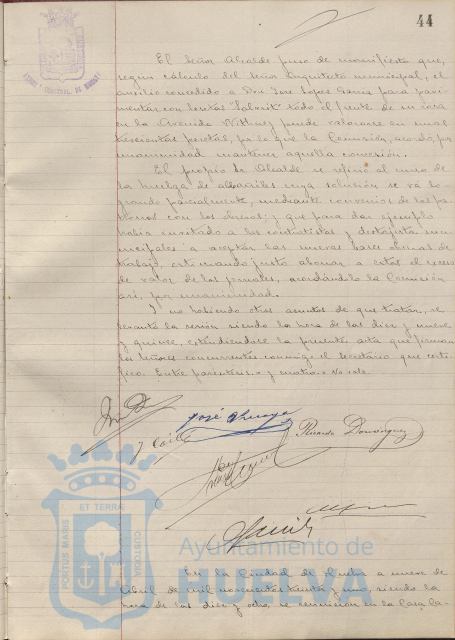 44
El Señor Alcalde puso de manifiesto que,
según cálculo del Señor Arquitecto municipal, el
auxilio concedido a Don José López para pavi-
mentar con losetas todo el frente de su casa
en la Avenida puede valorarse en unas
trescientas pesetas, por lo que la Comisión, acordó, por
unanimidad mantener aquella concesión.
El propio Sr. Alcalde se refirió al curso de
la huelga de albañiles cuya solución se va lo-
grando parcialmente, mediante convenios de los pa-
tronos con los obreros; y que para dar ejemplo
había invitado a los contratistas y destajistas mu-
nicipales a aceptar las nuevas bases obreras de
trabajo, estimando justo abonar a estos el exceso
de valor de los jornales, acordándolo la Comisión
así, por unanimidad.
Y no habiendo otros asuntos de que tratar, se
levantó la sesión siendo la hora de las diez y nueve
y quince, extendiéndose la presente acta que firman
los Señores concurrentes conmigo el Secretario que certi-
fico. Entre paréntesis = y cuatro = No vale.
José
Ricardo Domínguez
ET TERRA
PORTUS MARIS
CUSTODIA
Ayuntamiento de
HUELVA
En la Ciudad de Huelva a nueve de
Abril de mil novecientos treinta y uno, siendo la
hora de las diez y ocho, se reunieron en la Casa Ca-